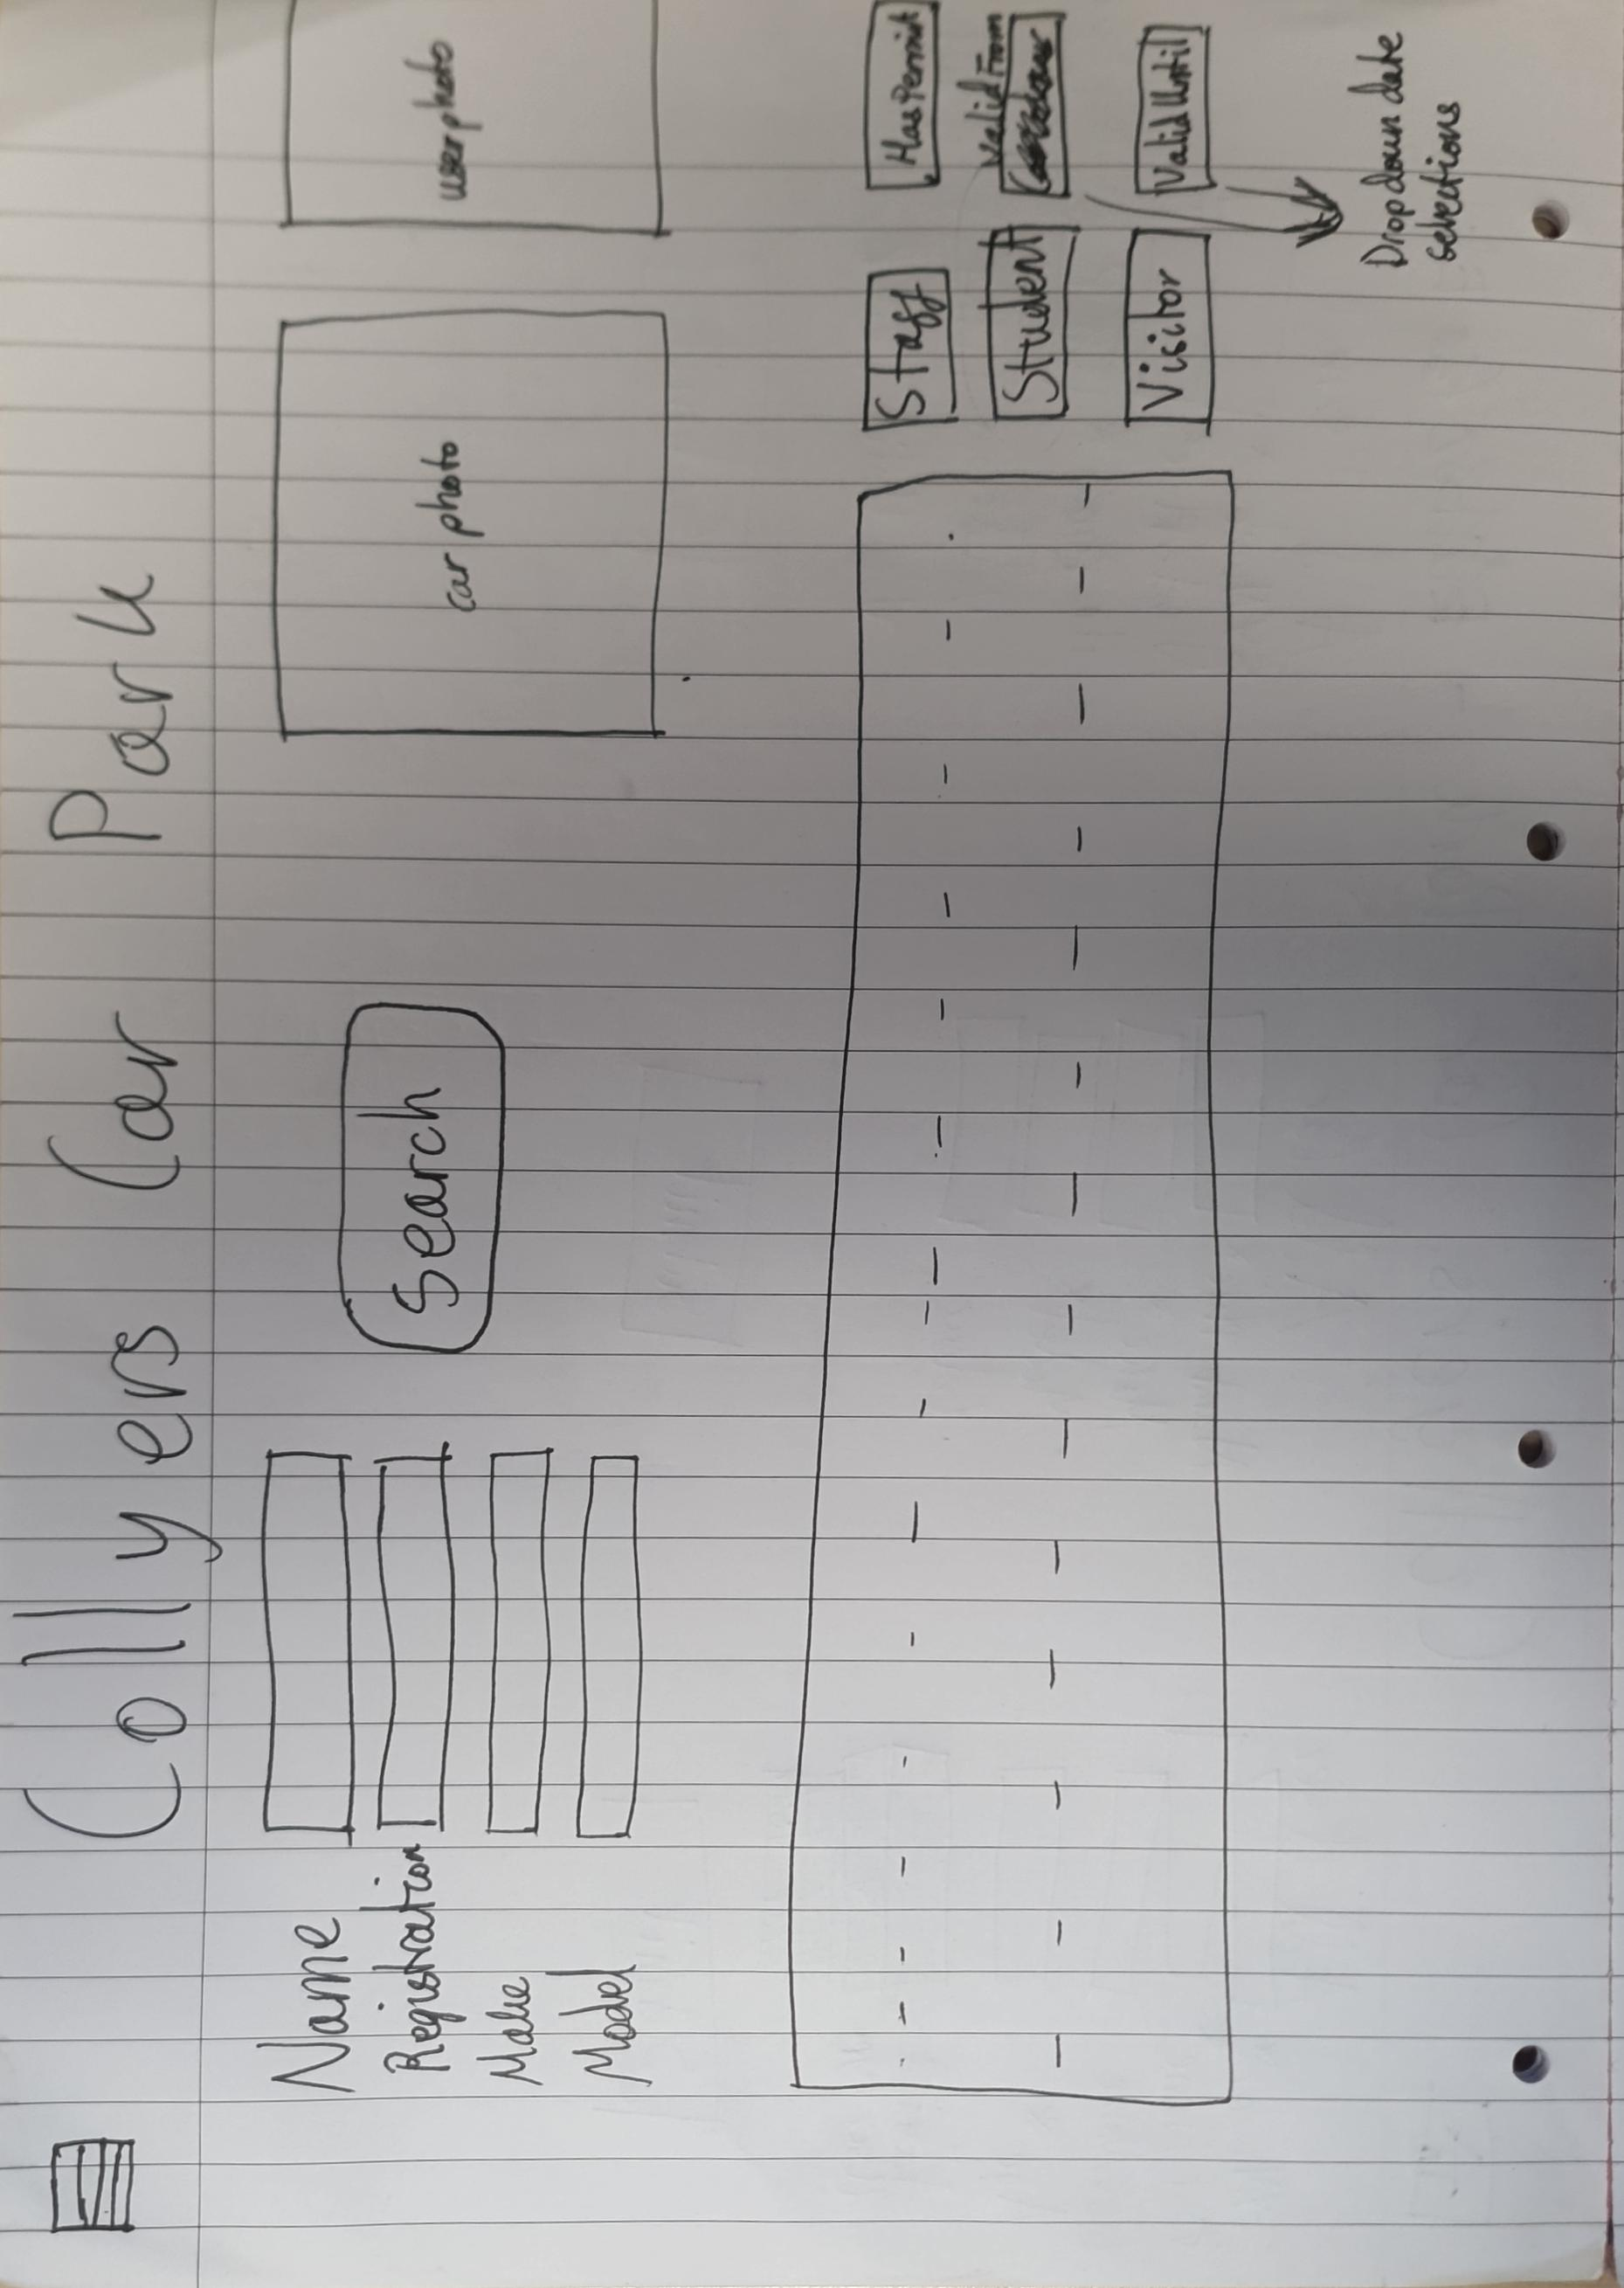 Collyers Car Park
Name
Registration
Make
Model
Search
car photo
user photo
Staff
Student
Visitor
Has Permit
Valid From
Valid Until
Drop down date
selections